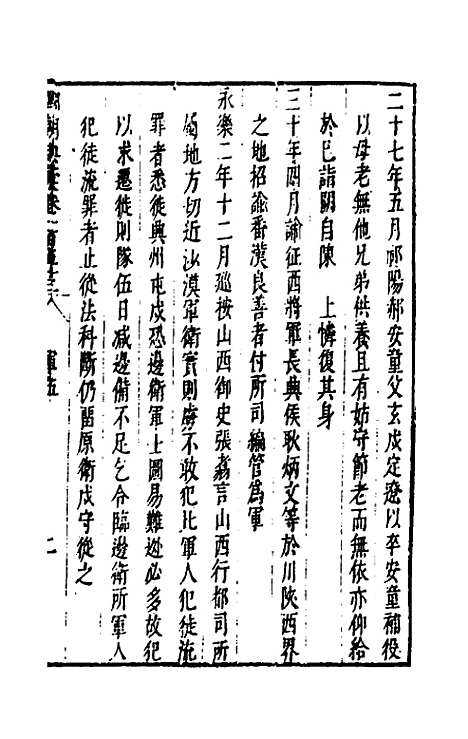 二十七年五月祁陽郝安童父玄戍定遼以卒安童補役
以母老無他兄弟供養且有妨守節老而無依亦仰給
於巳詣闕自陳　上憐復其身
三十年四月諭征西將軍長興侯耿炳文等於川陝西界
之地招諭番漢良善者付所司編管爲軍
永樂二年十二月巡按山西御史張翥言山西行都司所
屬地方切近沙漠軍衛實則虜不敢犯比軍人犯徒流
罪者悉徙興州屯戍恐邊衛軍士圖易難避必多故犯
以求遷徙則隊伍日减邊備不足乞令臨邊衛所軍人
犯徒流罪者止從法科斷仍留原衛戍守從之
卷一百五十八　軍伍　二